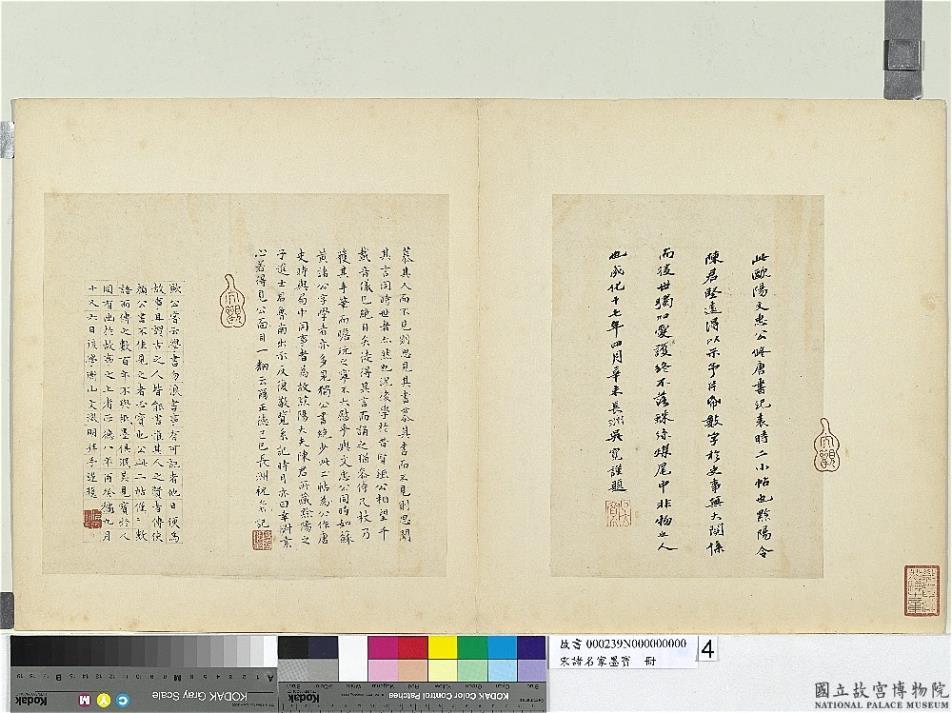 此歐陽文忠公修唐書紀表時二小帖也黟陽令
陳君堅遠得以示予片紙數字於史事無大關係
而後世獨加愛護終不落蛛絲煤尾中非物之人
也成化十七年四月辛未長洲吳寬謹題
慕其人而不見則思見其書慕其書而不見則思聞
其言同時世者亦然也況後學於昔賢公相望千
載音儀已絕目矣徒得其言而誦之猶
獲其手筆而瞻玩之寧不大慰乎與文忠公同時如蘇
黃諸公字學者亦多見獨公書絕少此二帖為公作唐
史時與局中同事者為故黟陽大夫陳君所藏黟陽之
子進士君魯南出示反復敬覽系記時月亦曰幸附素
心若得見公面目一翻云爾正德己巳長洲祝允明記
歐公嘗云學書勿浪書事有可記者他日便為
故事且謂古之人皆能書惟其人之賢者傳使
顏公書不佳見之者必寶也公此二帖僅僅數
語而傳之數百年不與紙墨俱泯其見寶於人
固有出於故事之上者正德八年
十又六日後學衡山文徵明拜手謹題
KODAK Gray Scale
KODAK Color Control Patches
Kodak
C
Y
M
A
M
B
故書 000239N000000000
宋諸名家墨寶 冊
4
國立故宮博物院
NATIONAL PALACE MUSEUM